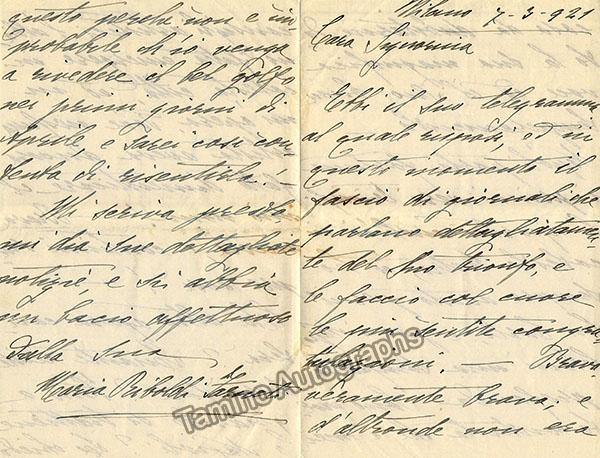 Milano 7-3-921
Cara Signorina
Ebbi il Suo telegramma
al quale risposi, ed in
questo momento il
fascio di giornali che
parlano dettagliatamen-
te del Suo trionfo, e
le faccio col cuore
le più sentite congra-
tulazioni. — Brava
veramente brava; e
d'altronde non era
questo perchè non è im-
probabile ch'io venga
a rivedere il bel golfo
nei primi giorni di
Aprile, e sarei così con-
tenta di risentirla! —
Mi scriva presto
mi dia sue dettagliate
notizie, e si abbia
un bacio affettuoso
dalla sua
Maria
Tamino Autographs